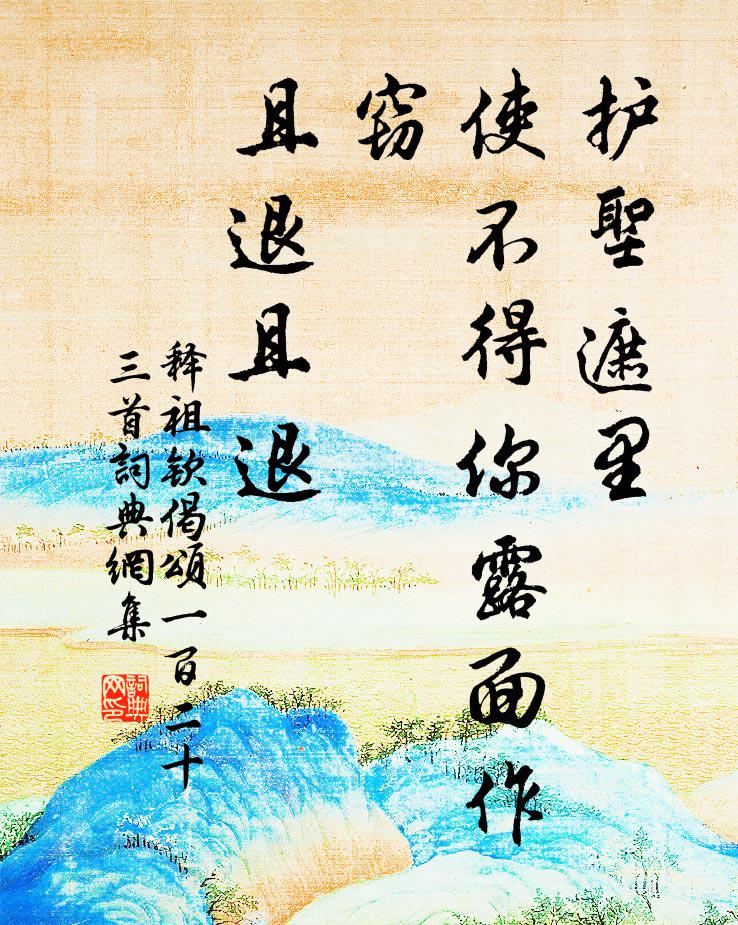 护聖遮里
使不得你露面作
窃
且退且退
释祖钦偈頌一百二十
三首詞典網集
詞典
网印